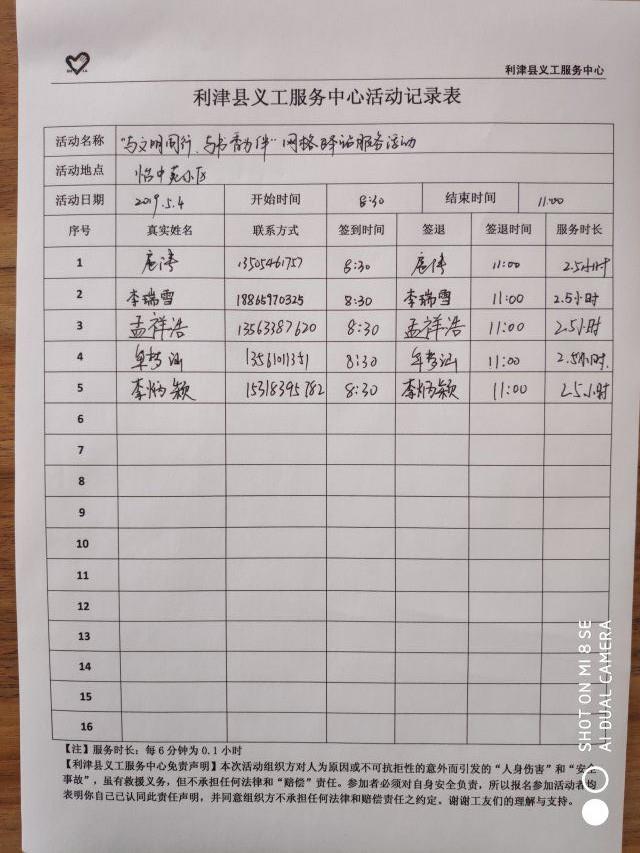 利津县义工服务中心
利津县义工服务中心活动记录表
活动名称 "与文明同行、与书香为伴"网格驿站服务活动
活动地点 怡中苑小区
活动日期 2019.5.4 开始时间 8:30 结束时间 11:00
序号 真实姓名 联系方式 签到时间 签退 签退时间 服务时长
1 13505461757 8:30 11:00 2.5小时
2 李瑞雪 18865970325 8:30 李瑞雪 11:00 2.5小时
3 孟祥浩 13563387620 8:30 孟祥浩 11:00 2.5小时
4 8:30 11:00 2.5小时.
5 李炳颖 15318395782 8:30 李炳颖 11:00 2.5小时
6
7
8
9
10
11
12
13
14
15
16
【注】服务时长：每6分钟为0.1小时
【利津县义工服务中心免责声明】本次活动组织方对人为原因或不可抗拒性的意外而引发的“人身伤害”和“安全
事故”，虽有救援义务，但不承担任何法律和“赔偿”责任。参加者必须对自身安全负责，所以报名参加活动者均
表明你自己已认同此责任声明，并同意组织方不承担任何法律和赔偿责任之约定。谢谢工友们的理解与支持。
SHOT ON MI 8 SE
AI DUAL CAMERA